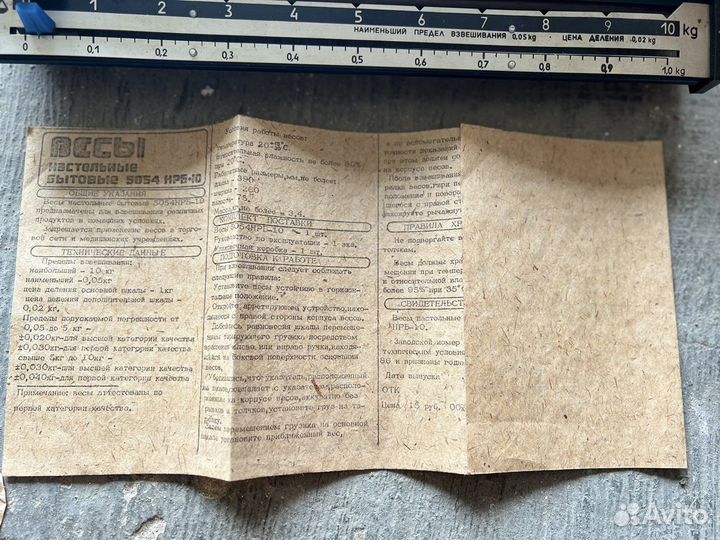 3 4 5 6 7 8 9 10 kg
НАИМЕНЬШИЙ ПРЕДЕЛ ВЗВЕШИВАНИЯ 0,05 kg · ЦЕНА ДЕЛЕНИЯ 0,02 kg
0 0,1 0,2 0,3 0,4 0,5 0,6 0,7 0,8 0,9 1,0 kg
ВЕСЫ
НАСТОЛЬНЫЕ
БЫТОВЫЕ 5054 НРБ-10
ОБЩИЕ УКАЗАНИЯ
Весы настольные бытовые 5054НРБ-10
предназначены для взвешивания различных
продуктов в домашних условиях.
Запрещается применение весов в торго-
вой сети и медицинских учреждениях.
ТЕХНИЧЕСКИЕ ДАННЫЕ
Пределы взвешивания:
наибольший - 10 кг
наименьший -0,05кг
цена деления основной шкалы - 1кг
цена деления дополнительной шкалы -
0,02 кг.
Пределы допускаемой погрешности от
0,05 до 5 кг -
±0,020кг-для высшей категории качества
±0,030кг-для первой категории качества
свыше 5кг до 10кг -
±0,030кг-для высшей категории качества
±0,040кг-для первой категории качества
Примечание: весы аттестованы по
первой категории качества.
Условия работы весов:
температура 20 °С.
относительная влажность не более 80%
при 20°С.
Габаритные размеры,мм,не более:
длина - 390.
ширина - 260
высота- 75.
Масса,кг,не более - 3,4.
КОМПЛЕКТ ПОСТАВКИ
Весы 5054НРБ-10 - 1 шт.
Руководство по эксплуатации - 1 экз.
коробка - 1 шт.
ПОДГОТОВКА К РАБОТЕ
При взвешивании следует соблюдать
следующие правила:
Установите весы устойчиво в горизон-
тальное положение.
Откройте арретирующее устройство,нахо-
дящееся с правой стороны корпуса весов.
Добейтесь равновесия шкалы перемеще-
нием тарирующего грузика посредством
вращения влево,или вправо ручки,находя-
щейся на боковой поверхности основания
весов.
Убедившись,что указатель,расположенный
на шкале,совпадает с указателем,располо-
женным на корпусе весов,аккуратно без
рывков и толчков,установите груз на та-
релку.
Затем перемещением грузика на основной
шкале установите приближенный вес,
а по вспомогательной
точности показаний
при этом должен со
на корпусе весов.
После взвешивания
релки весов,приве
положение и поверн
щееся с правой ст
фиксируйте рычажну
ПРАВИЛА ХР
Не подвергайте в
толчкам.
Весы должны хра
мещении при темпер
и относительной вла
более 95% при 35°С
СВИДЕТЕЛЬСТ
Весы настольные
НРБ-10.
Заводской номер
техническим услови
86 и признаны годны
Дата выпуска
ОТК
Цена 15 руб. 00к
Avito